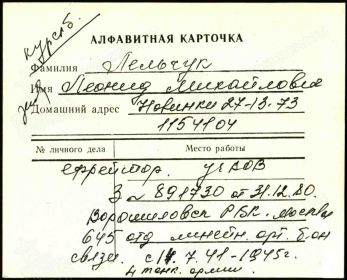 курсб.
АЛФАВИТНАЯ КАРТОЧКА
Фамилия Пельчук
Имя Леонид Михайлович
Домашний адрес Новинки 27-13-73
1154104
№ личного дела Место работы
ефрейтор. УГАОВ
З № 891730 от 31.12.80.
Ворошиловск РВК. Москва
645 отд линейн. арт. б-он
связи. с 7.41-1945г.
4 танк. армии